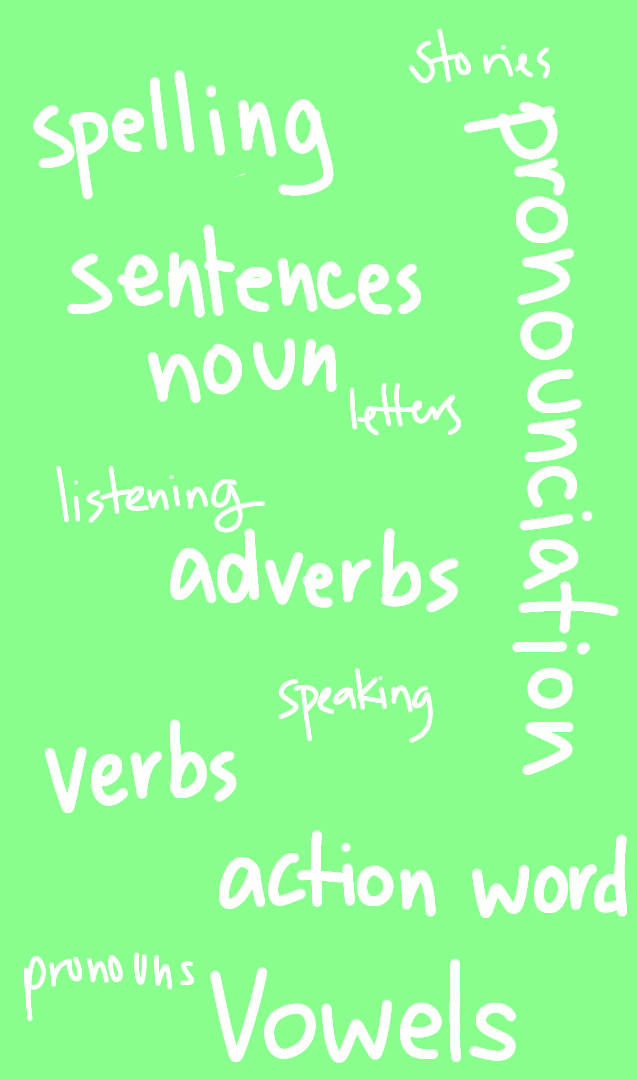 stories
spelling
pronounciation
sentences
noun
letters
listening
adverbs
speaking
verbs
action word
pronouns
Vowels